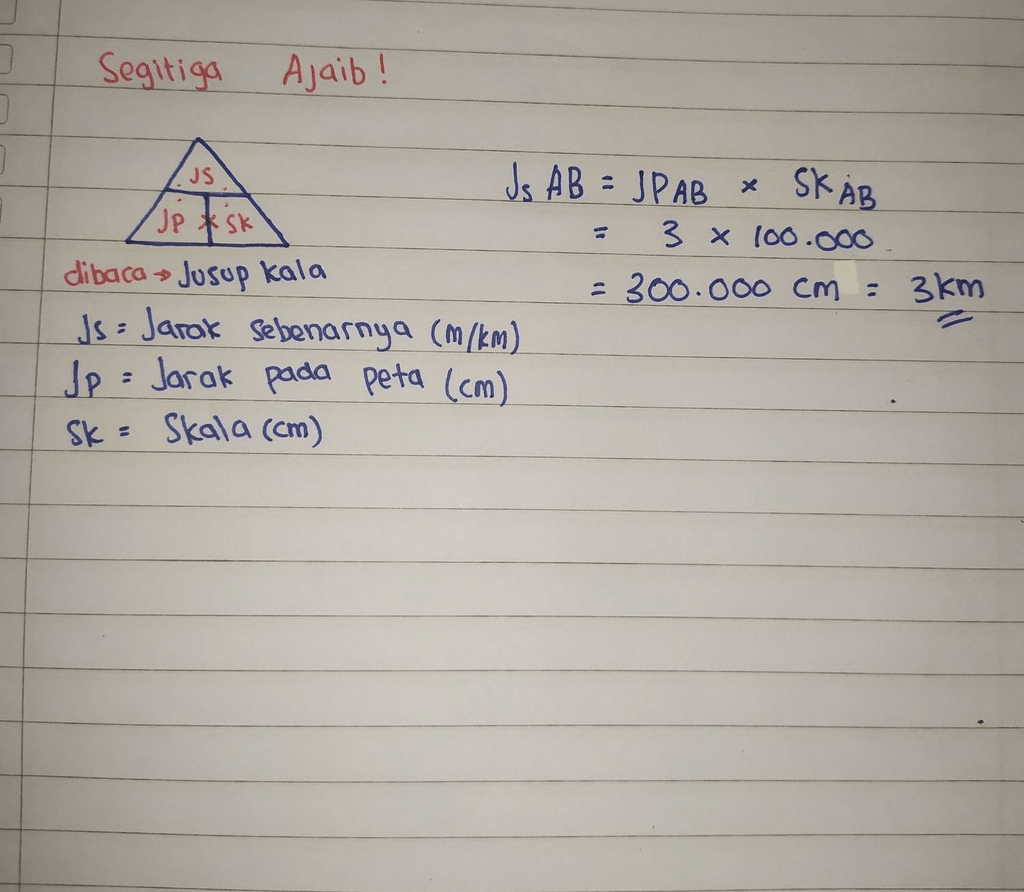 Segitiga Ajaib!
JS
JP x SK
dibaca → Jusup kala
Js = Jarak sebenarnya (m/km)
Jp = Jarak pada peta (cm)
Sk = Skala (cm)
Js AB = JP AB x SK AB
= 3 x 100.000
= 300.000 cm = 3 km